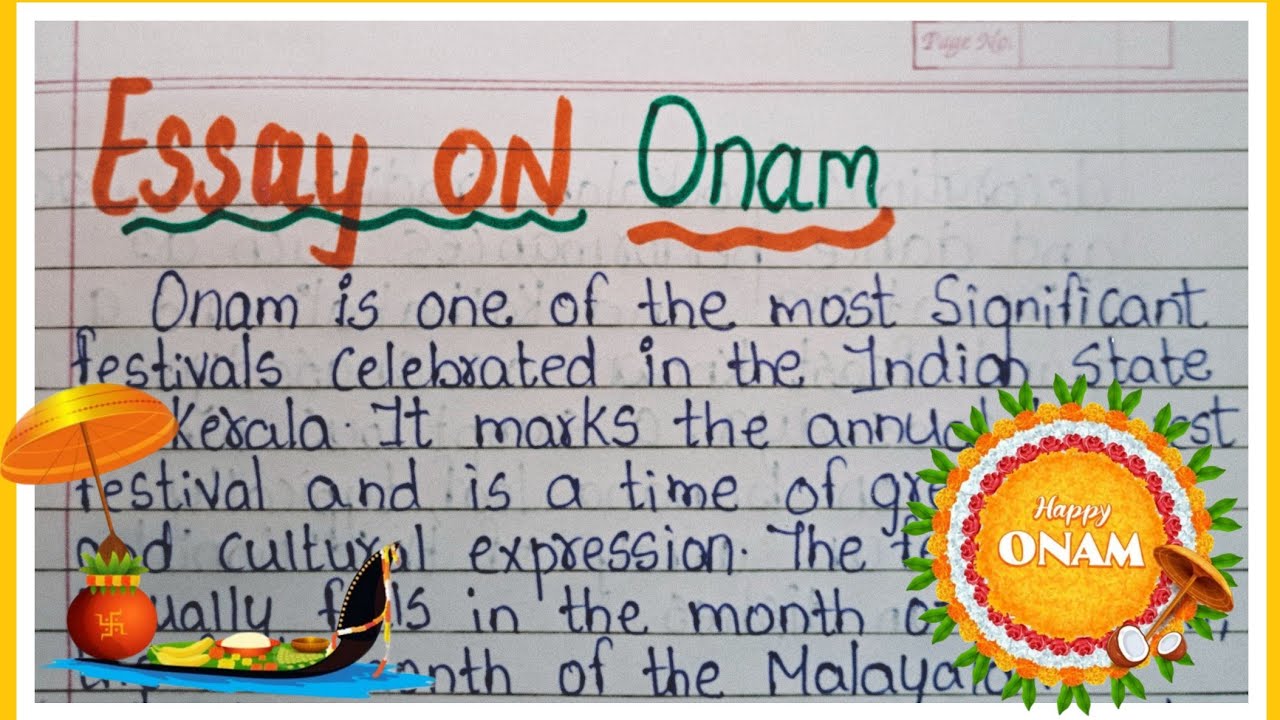 Page No.
Essay ON Onam
Onam is one of the most Significant
festivals celebrated in the Indian State
Kerala. It marks the
festival and is a time of
cultural expression. The
in the month
of the
Happy
ONAM